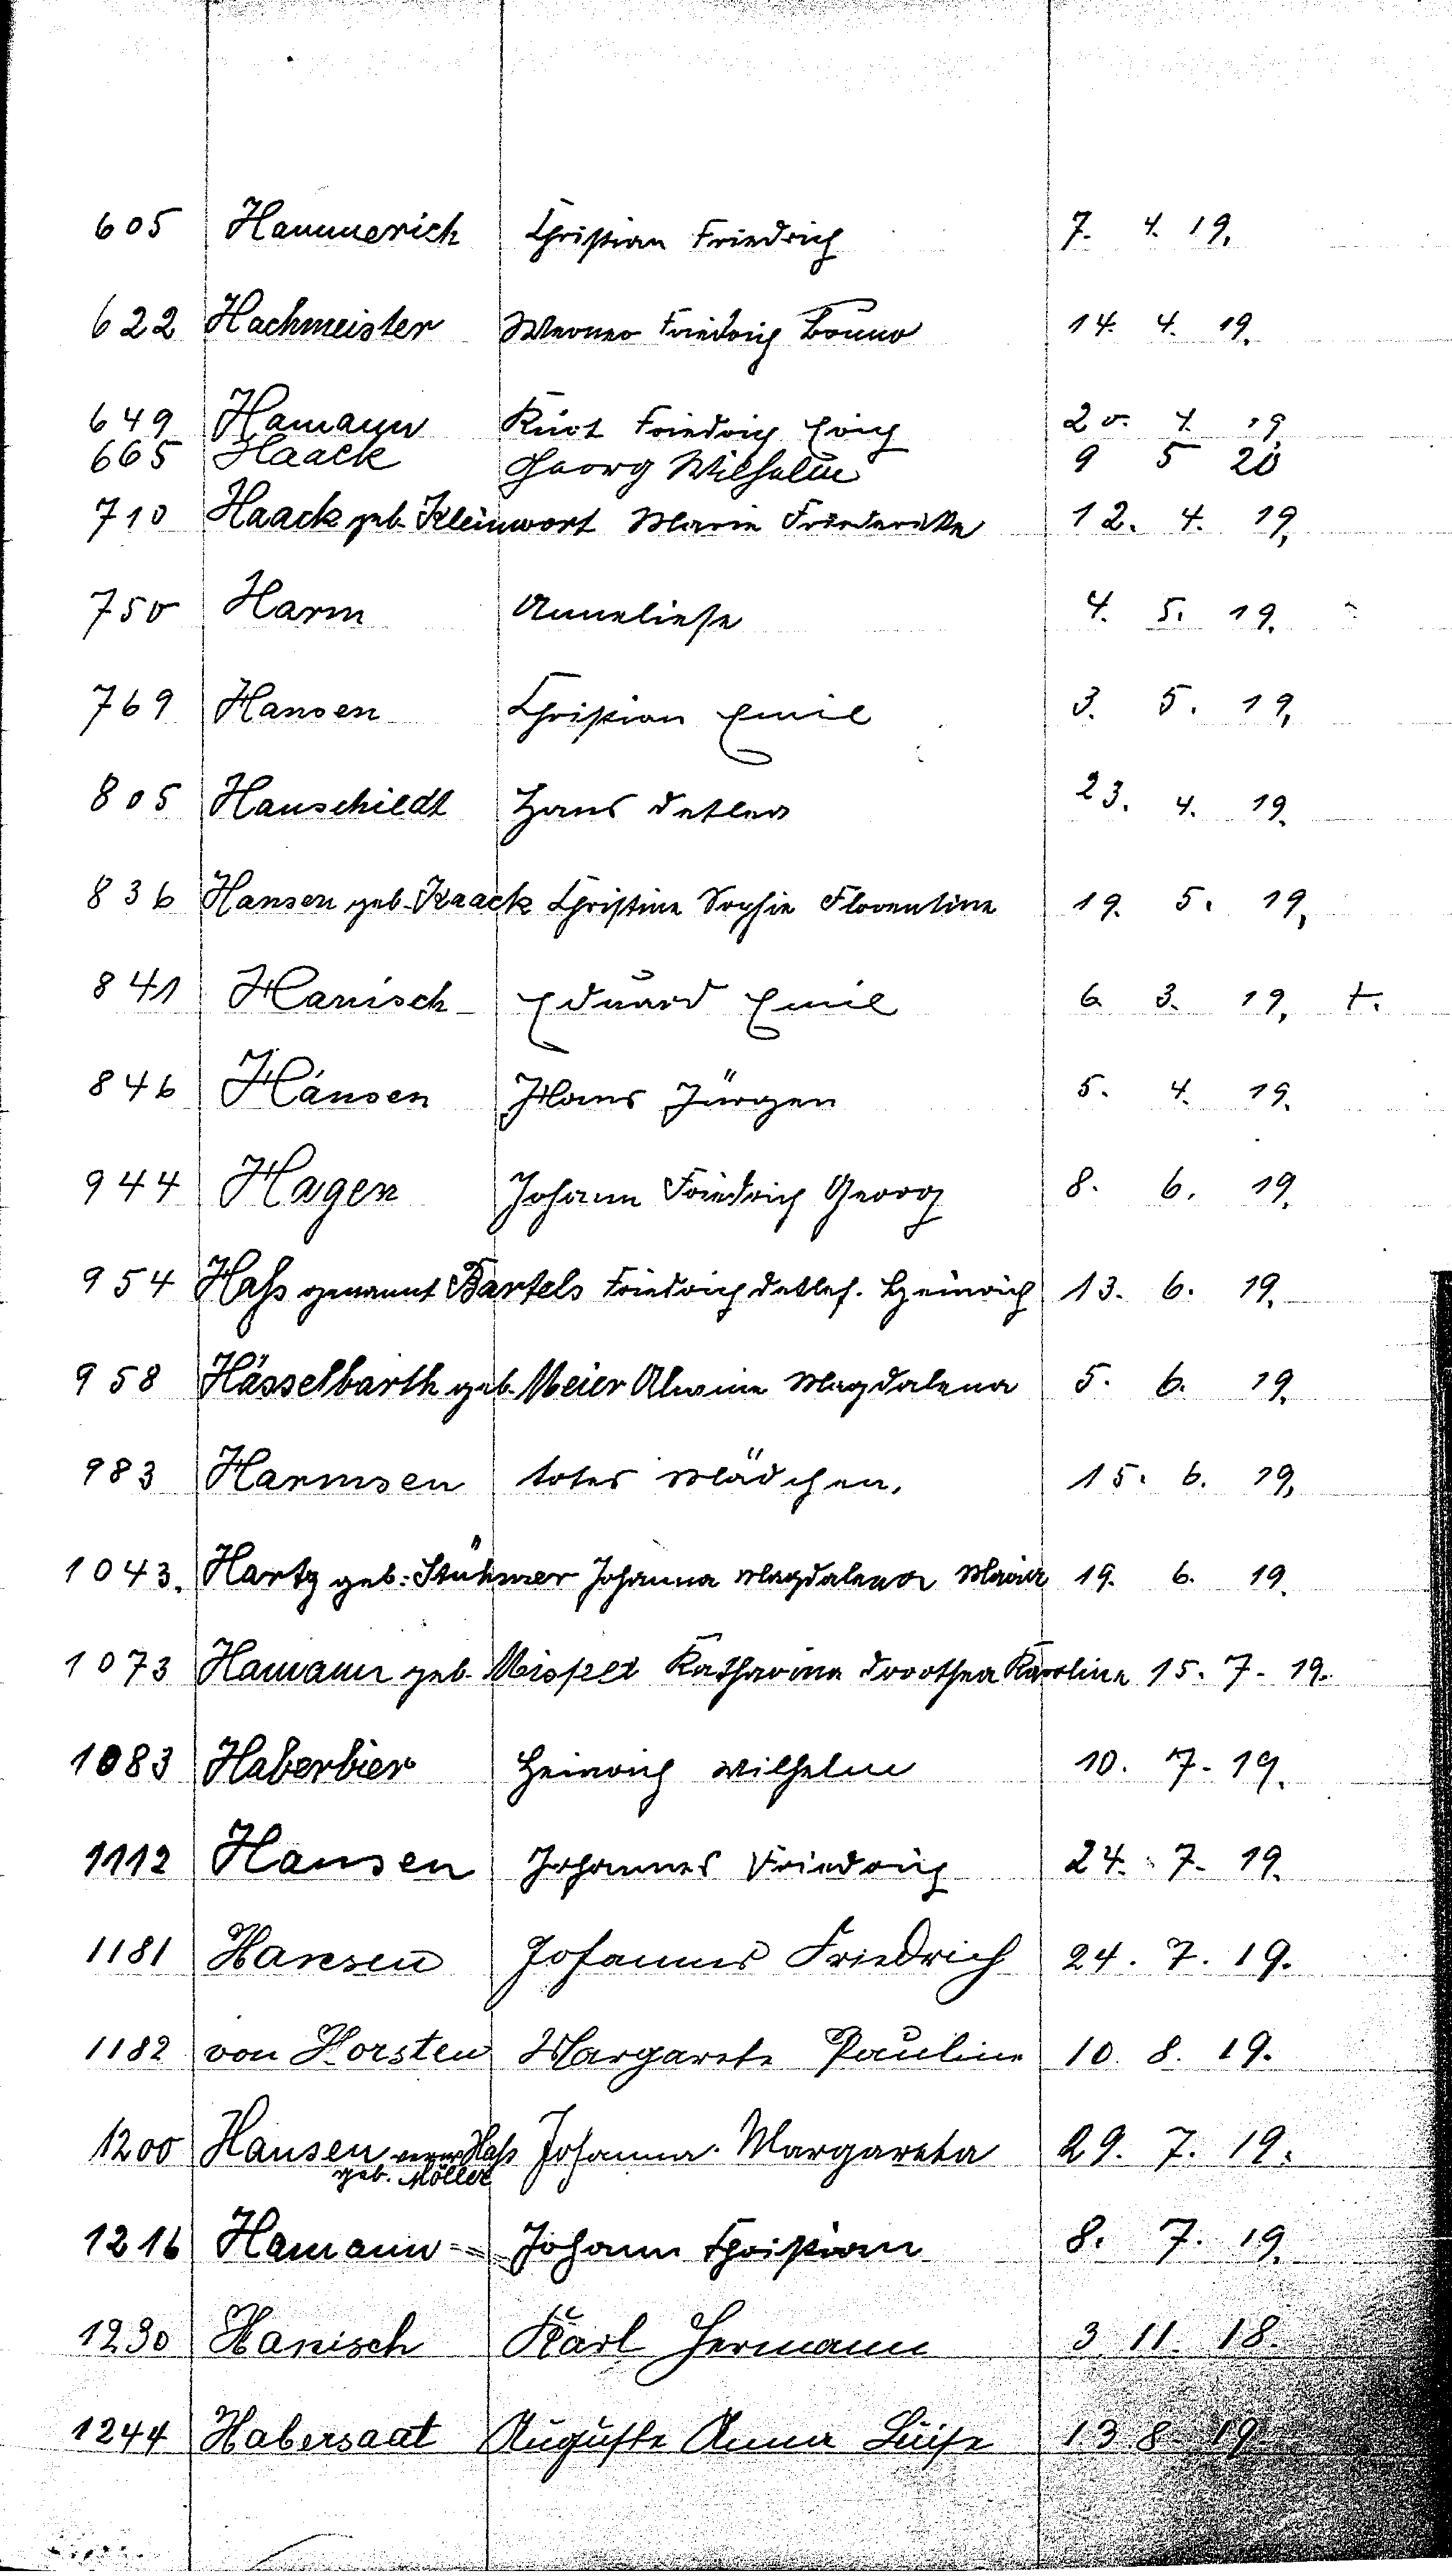 605 Hammerich Christian Friedrich 7. 4. 19.
622 Hachmeister Werner Friedrich Bruno 14. 4. 19.
649 Hamann Kurt Friedrich Erich 20. 4. 19.
665 Haack Georg Wilhelm 9 5 20
710 Haack geb. Kleinwort Marie Friederike 12. 4. 19.
750 Harm Anneliese 4. 5. 19.
769 Hansen Christian Emil 3. 5. 19.
805 Hauschildt Hans Detlev 23. 4. 19.
836 Hansen geb. Kaack Christine Sophie Florentine 19. 5. 19.
841 Hanisch Eduard Emil 6. 3. 19. t.
846 Hänsen Hans Jürgen 5. 4. 19.
944 Hagen Johann Friedrich Georg 8. 6. 19.
954 Haß genannt Bartels Friedrich Detlef. Heinrich 13. 6. 19.
958 Hässelbarth geb. Meier Alwine Magdalena 5. 6. 19.
983 Harmsen totes Mädchen. 15. 6. 19.
1043. Hartz geb. Stühmer Johanna Magdalena Maria 19. 6. 19.
1073 Hamann geb. Katharina Dorothea Karoline 15. 7. 19.
1083 Haberbier Heinrich Wilhelm 10. 7. 19.
1112 Hansen Johannes Friedrich 24. 7. 19.
1181 Hansen Johannes Friedrich 24. 7. 19.
1182 von Horsten Margarete Pauline 10. 8. 19.
1200 Hansen Haß Johanna Margareta 29. 7. 19.
geb. Möller
1216 Hamann Johann Christian 8. 7. 19.
1230 Hanisch Karl Hermann 3 11. 18.
1244 Habersaat Auguste Anna Luise 13 8. 19